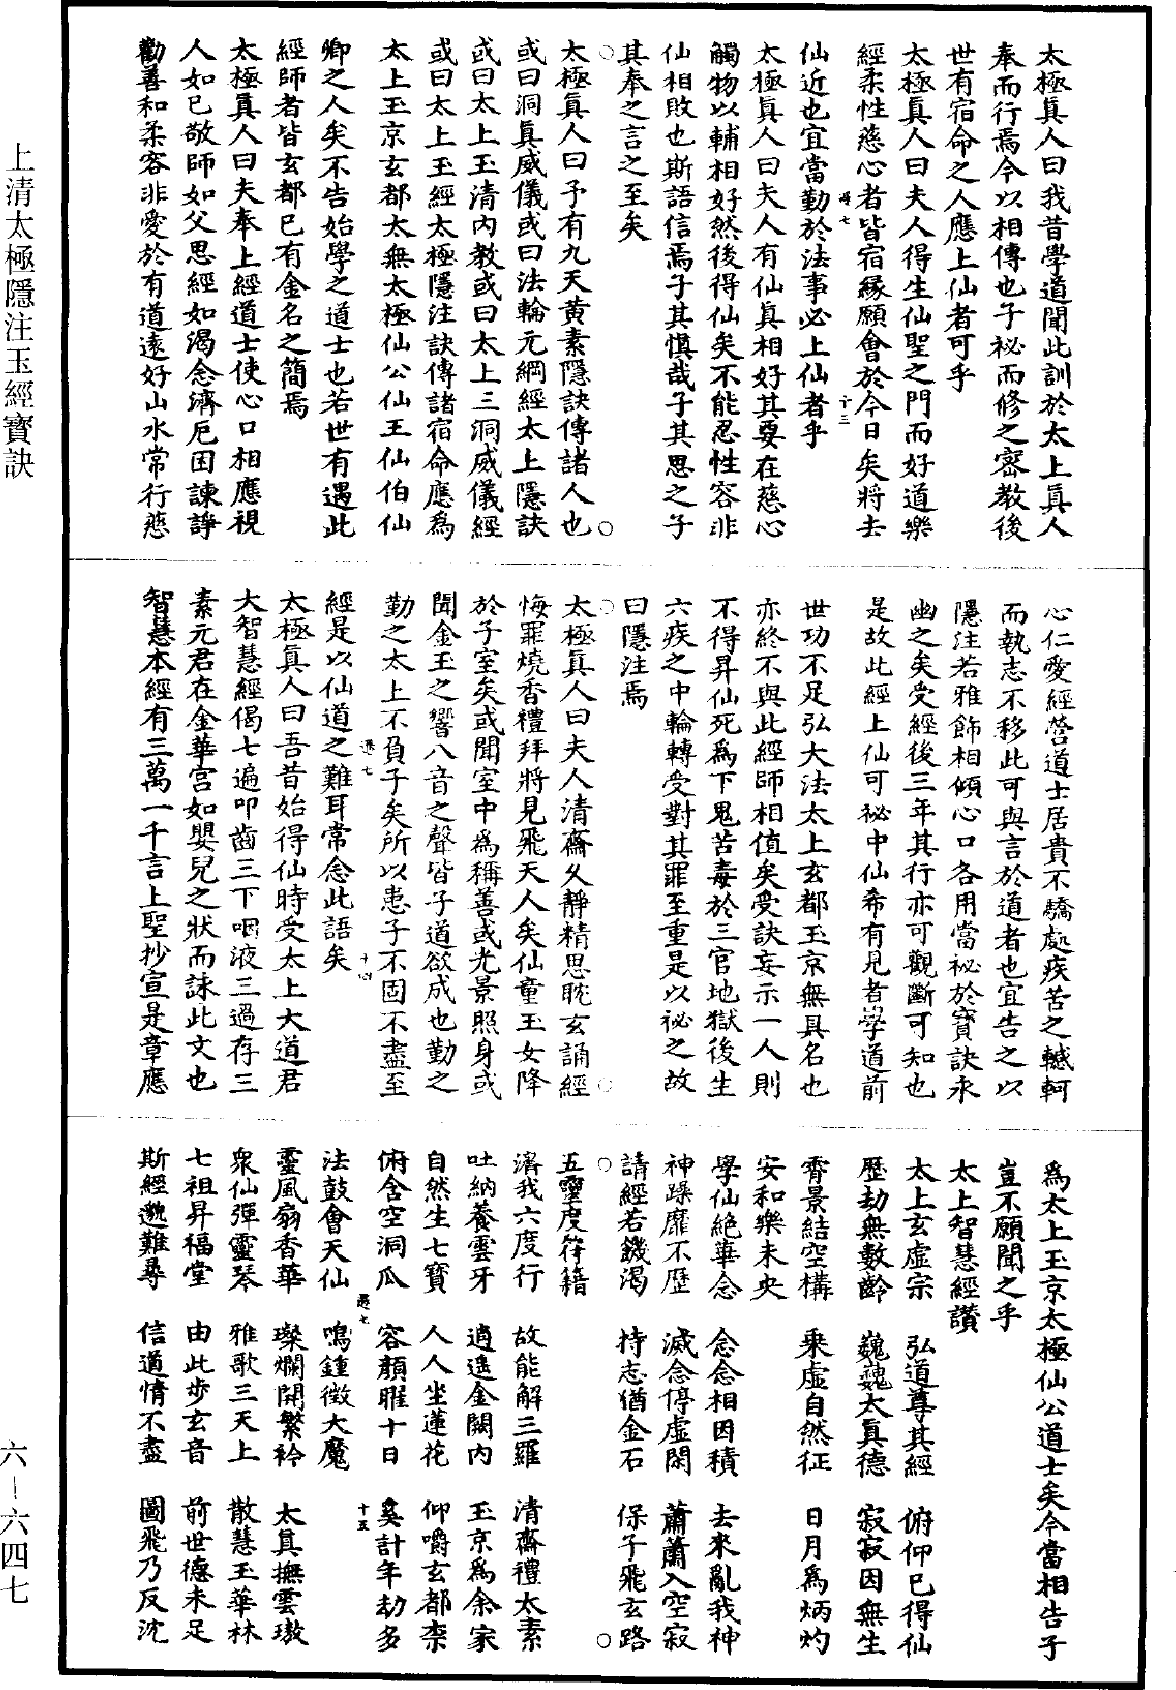 上清太極隱注玉經寶訣
太極眞人曰我昔學道聞此訓於太上眞人
奉而行焉今以相傳也子祕而修之密教後
世有宿命之人應上仙者可乎
太極眞人曰夫人得生仙聖之門而好道樂
經柔性慈心者皆宿緣願會於今日矣將去
仙近也宜當勤於法事必上仙者乎
太極眞人曰夫人有仙眞相好其要在慈心
觸物以輔相好然後得仙矣不能忍性容非
仙相敗也斯語信焉子其愼哉子其思之子
其奉之言之至矣
太極眞人曰予有九天黃素隱訣傳諸人也
或曰洞眞威儀或曰法輪元綱經太上隱訣
或曰太上玉清內教或曰太上三洞威儀經
或曰太上玉經太極隱注訣傳諸宿命應爲
太上玉京玄都太無太極仙公仙王仙伯仙
卿之人矣不告始學之道士也若世有遇此
經師者皆玄都已有金名之簡焉
太極眞人曰夫奉上經道士使心口相應視
人如己敬師如父思經如渴念濟厄困諫諍
勸善和柔容非愛於有道遠好山水常行慈
心仁愛經營道士居貴不驕處疾苦之轗軻
而執志不移此可與言於道者也宜告之以
隱注若雅飾相傾心口各用當祕於寶訣永
幽之矣受經後三年其行亦可觀斷可知也
是故此經上仙可祕中仙希有見者學道前
世功不足弘大法太上玄都玉京無具名也
亦終不與此經師相值矣受訣妄示一人則
不得昇仙死爲下鬼苦毒於三官地獄後生
六疾之中輪轉受對其罪至重是以祕之故
曰隱注焉
太極眞人曰夫人清齋久靜精思耽玄誦經
悔罪燒香禮拜將見飛天人矣仙童玉女降
於子室矣或聞室中爲稱善或光景照身或
聞金玉之響八音之聲皆子道欲成也勤之
勤之太上不負子矣所以患子不固不盡至
經是以仙道之難耳常念此語矣
太極眞人曰吾昔始得仙時受太上大道君
大智慧經偈七遍叩齒三下咽液三過存三
素元君在金華宮如嬰兒之狀而詠此文也
智慧本經有三萬一千言上聖抄宣是章應
爲太上玉京太極仙公道士矣今當相告子
豈不願聞之乎
太上智慧經讚
太上玄虛宗　弘道尊其經　俯仰已得仙
歷劫無數齡　巍巍太眞德　寂寂因無生
霄景結空構　乘虛自然征　日月爲炳灼
安和樂未央
學仙絕華念　念念相因積　去來亂我神
神躁靡不歷　滅念停虛閑　蕭蕭入空寂
請經若饑渴　持志猶金石　保子飛玄路
五靈度符籍
濟我六度行　故能解三羅　清齋禮太素
吐納養雲牙　逍遙金闕內　玉京爲余家
自然生七寶　人人坐蓮花　仰嚼玄都柰
俯含空洞瓜　容顏曜十日　奚計年劫多
法鼓會天仙　鳴鍾徵大魔
靈風扇香華　璨爛開繁衿　太眞撫雲璈
衆仙彈靈琴　雅歌三天上　散慧玉華林
七祖昇福堂　由此步玄音　前世德未足
斯經邈難尋　信道情不盡　圖飛乃反沈
六－六四七